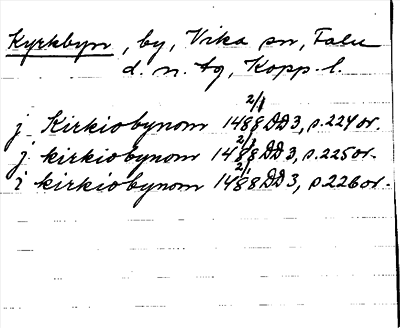 Kyrkbyn, by, Vika sn, Falu
d. n. tg, Kopp. l.
j Kirkiobynom 1488 2/1 DD 3, s. 224 or.
j kirkiobynom 1488 2/1 DD 3, s. 225 or.
i kirkiobynom 1488 2/1 DD 3, s. 226 or.